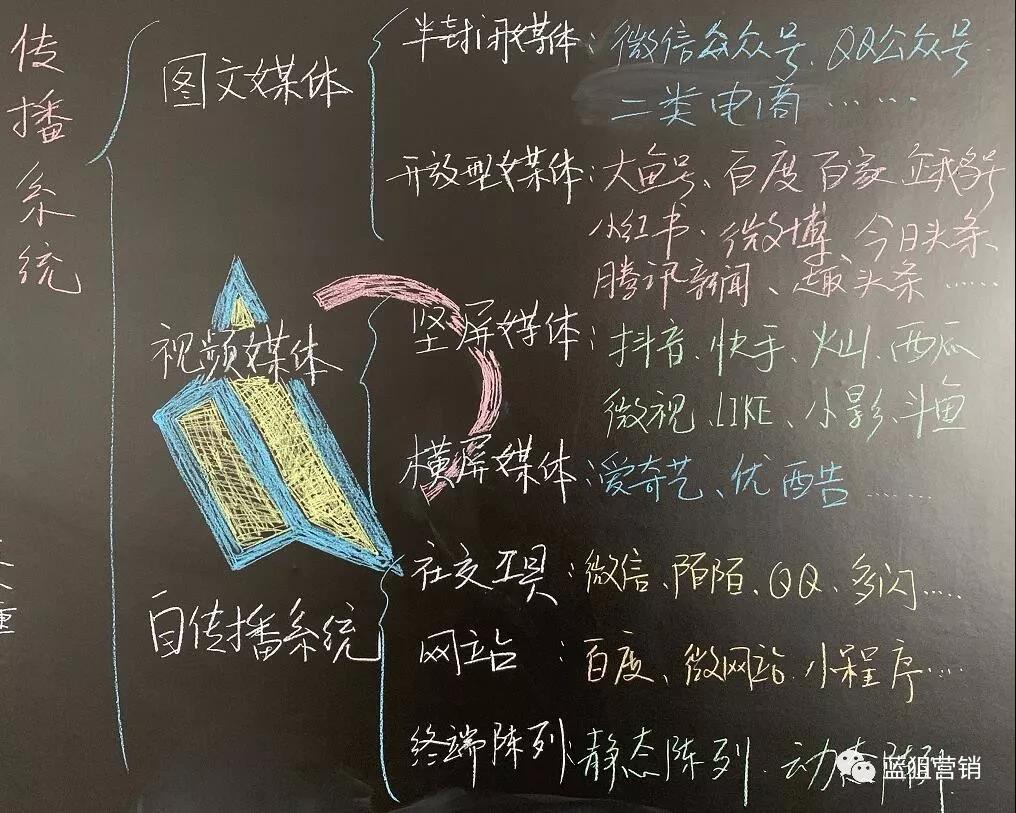 传播系统
图文媒体
半封闭媒体：微信公众号、QQ公众号
二类电商……
开放型媒体：大鱼号、百度百家
小红书、微博、今日头条、
腾讯新闻、趣头条……
视频媒体
坚屏媒体：抖音、快手、火山、西瓜
微视、LIKE、小影、斗鱼
横屏媒体：爱奇艺、优酷……
社交工具：微信、陌陌、QQ、多闪……
自传播系统
网站：百度、微网站、小程序……
终端陈列：静态陈列、动态陈列
蓝狙营销